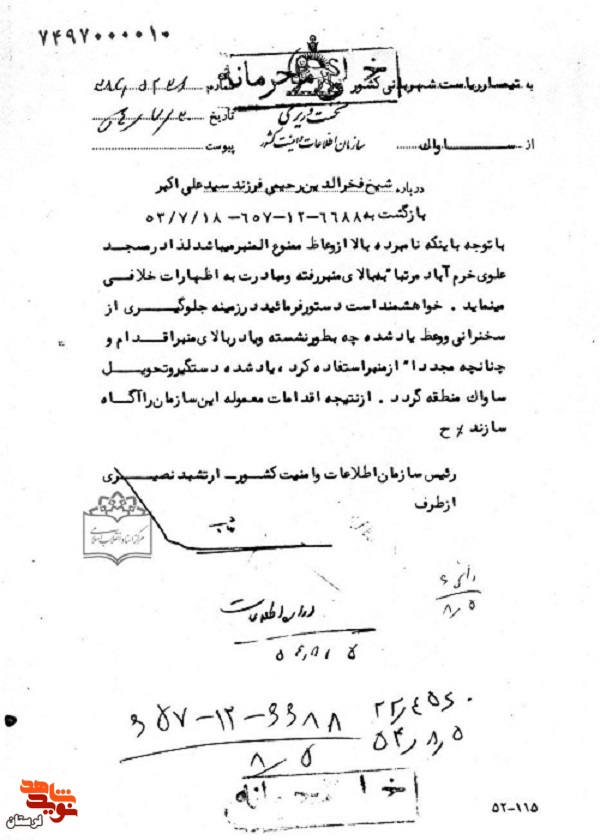 ۷۴۹۷۰۰۰۰۱۰
خیلی محرمانه
به تیمسار ریاست شهربانی کشور
شماره
نخست وزیری
تاریخ
سازمان اطلاعات و امنیت کشور
از ســاواک
پیوست
درباره شیخ فخرالدین رحیمی فرزند سید علی اکبر
بازگشت به ۶۶۸۸-۱۲-۶۵۷-۵۳/۷/۱۸
با توجه باینکه نامبرده بالا از وعاظ ممنوع المنبر میباشد لذا در مسجد
علوی خرم آباد مرتبا" به بالای منبر رفته و مبادرت به اظهارات خلافی
مینماید . خواهشمند است دستور فرمائید در زمینه جلوگیری از
سخنرانی و وعظ یاد شده چه بطور نشسته و یا در بالای منبر اقدام و
چنانچه مجددا" از منبر استفاده کرد ، یاد شده دستگیر و تحویل
ساواک منطقه گردد . از نتیجه اقدامات معموله این سازمان را آگاه
سازند ٪ ح
رئیس سازمان اطلاعات و امنیت کشور ـ ارتشبد نصیری
از طرف
مرکز اسناد انقلاب اسلامی
اداره اطلاعات
۶۵۷-۱۲-۶۶۸۸
۸/۵
۵۴/۸/۵
۵۲-۱۱۵
نوید شاهد
لرستان